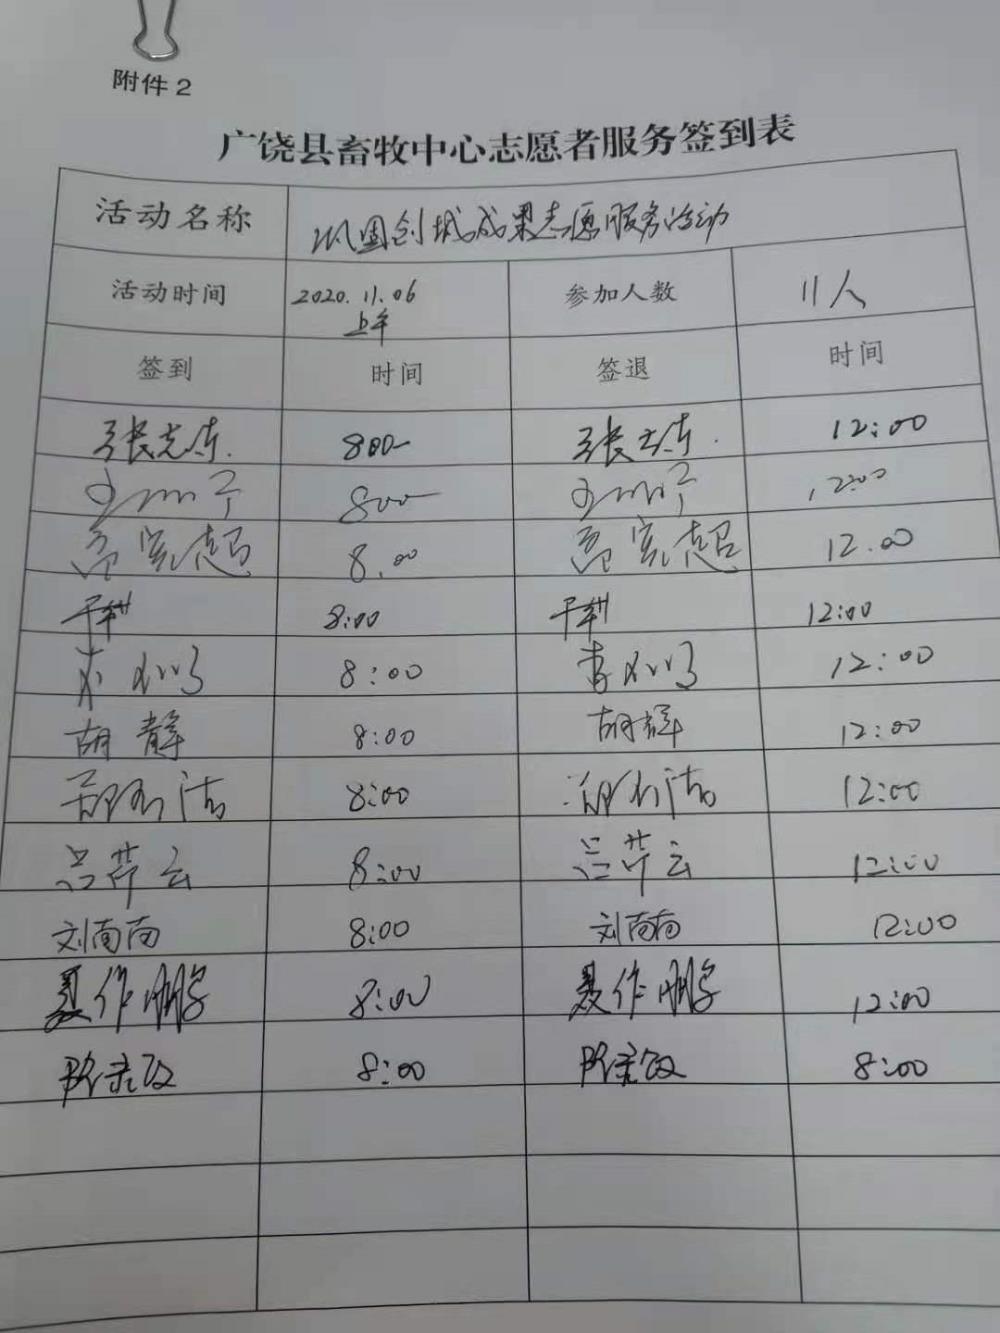 附件2
广饶县畜牧中心志愿者服务签到表
活动名称 巩固创城成果志愿服务活动
活动时间 2020.11.06 上午 参加人数 11人
签到 时间 签退 时间
张志东. 800 张志东. 12:00
800 12:00
高宪超 8.00 高宪超 12.00
8:00 12:00
8:00 李 12:00
胡静 8:00 胡静 12:00
8:00 12:00
吕芹云 8:00 吕芹云 12:00
刘南南 8:00 刘南南 12:00
聂作鹏 8:00 聂作鹏 12:00
8:00 8:00